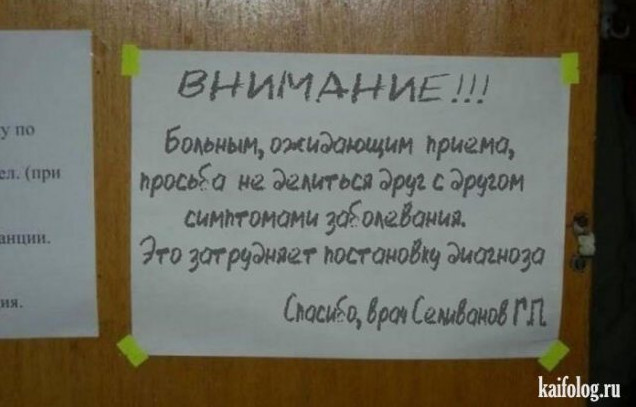 у по
ел. (при
анции.
ия.
ВНИМАНИЕ!!!
Больным, ожидающим приема,
просьба не делиться друг с другом
симптомами заболевания.
Это затрудняет постановку диагноза
Спасибо, врач Селиванов Г.П.
kaifolog.ru